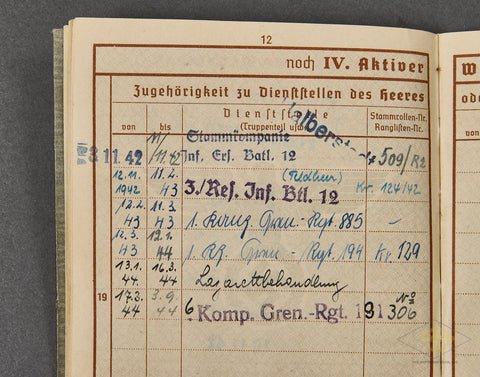 12
noch IV. Aktiver
W
Zugehörigkeit zu Dienststellen des Heeres
oder
von
bis
Dienststelle
(Truppenteil usw.)
Stammrollen-Nr.
Ranglisten-Nr.
Halberstadt
8.11.42 11.42 Stammkompanie
Inf. Ers. Batl. 12 509/R2
12.11. 1942 11.2. 43 (Feldheer)
3./Res. Inf. Btl. 12 Kr. 124/42
12.2. 43 11.3. 43 Gren.-Rgt. 885 –
12.3. 43 12.1. 44 Gren.-Rgt. 194 Kr. 129
13.1. 44. 16.3. 44. Lazarettbehandlung
19 17.3. 44 3.9. 44 6 Komp. Gren.-Rgt. 191 No 306